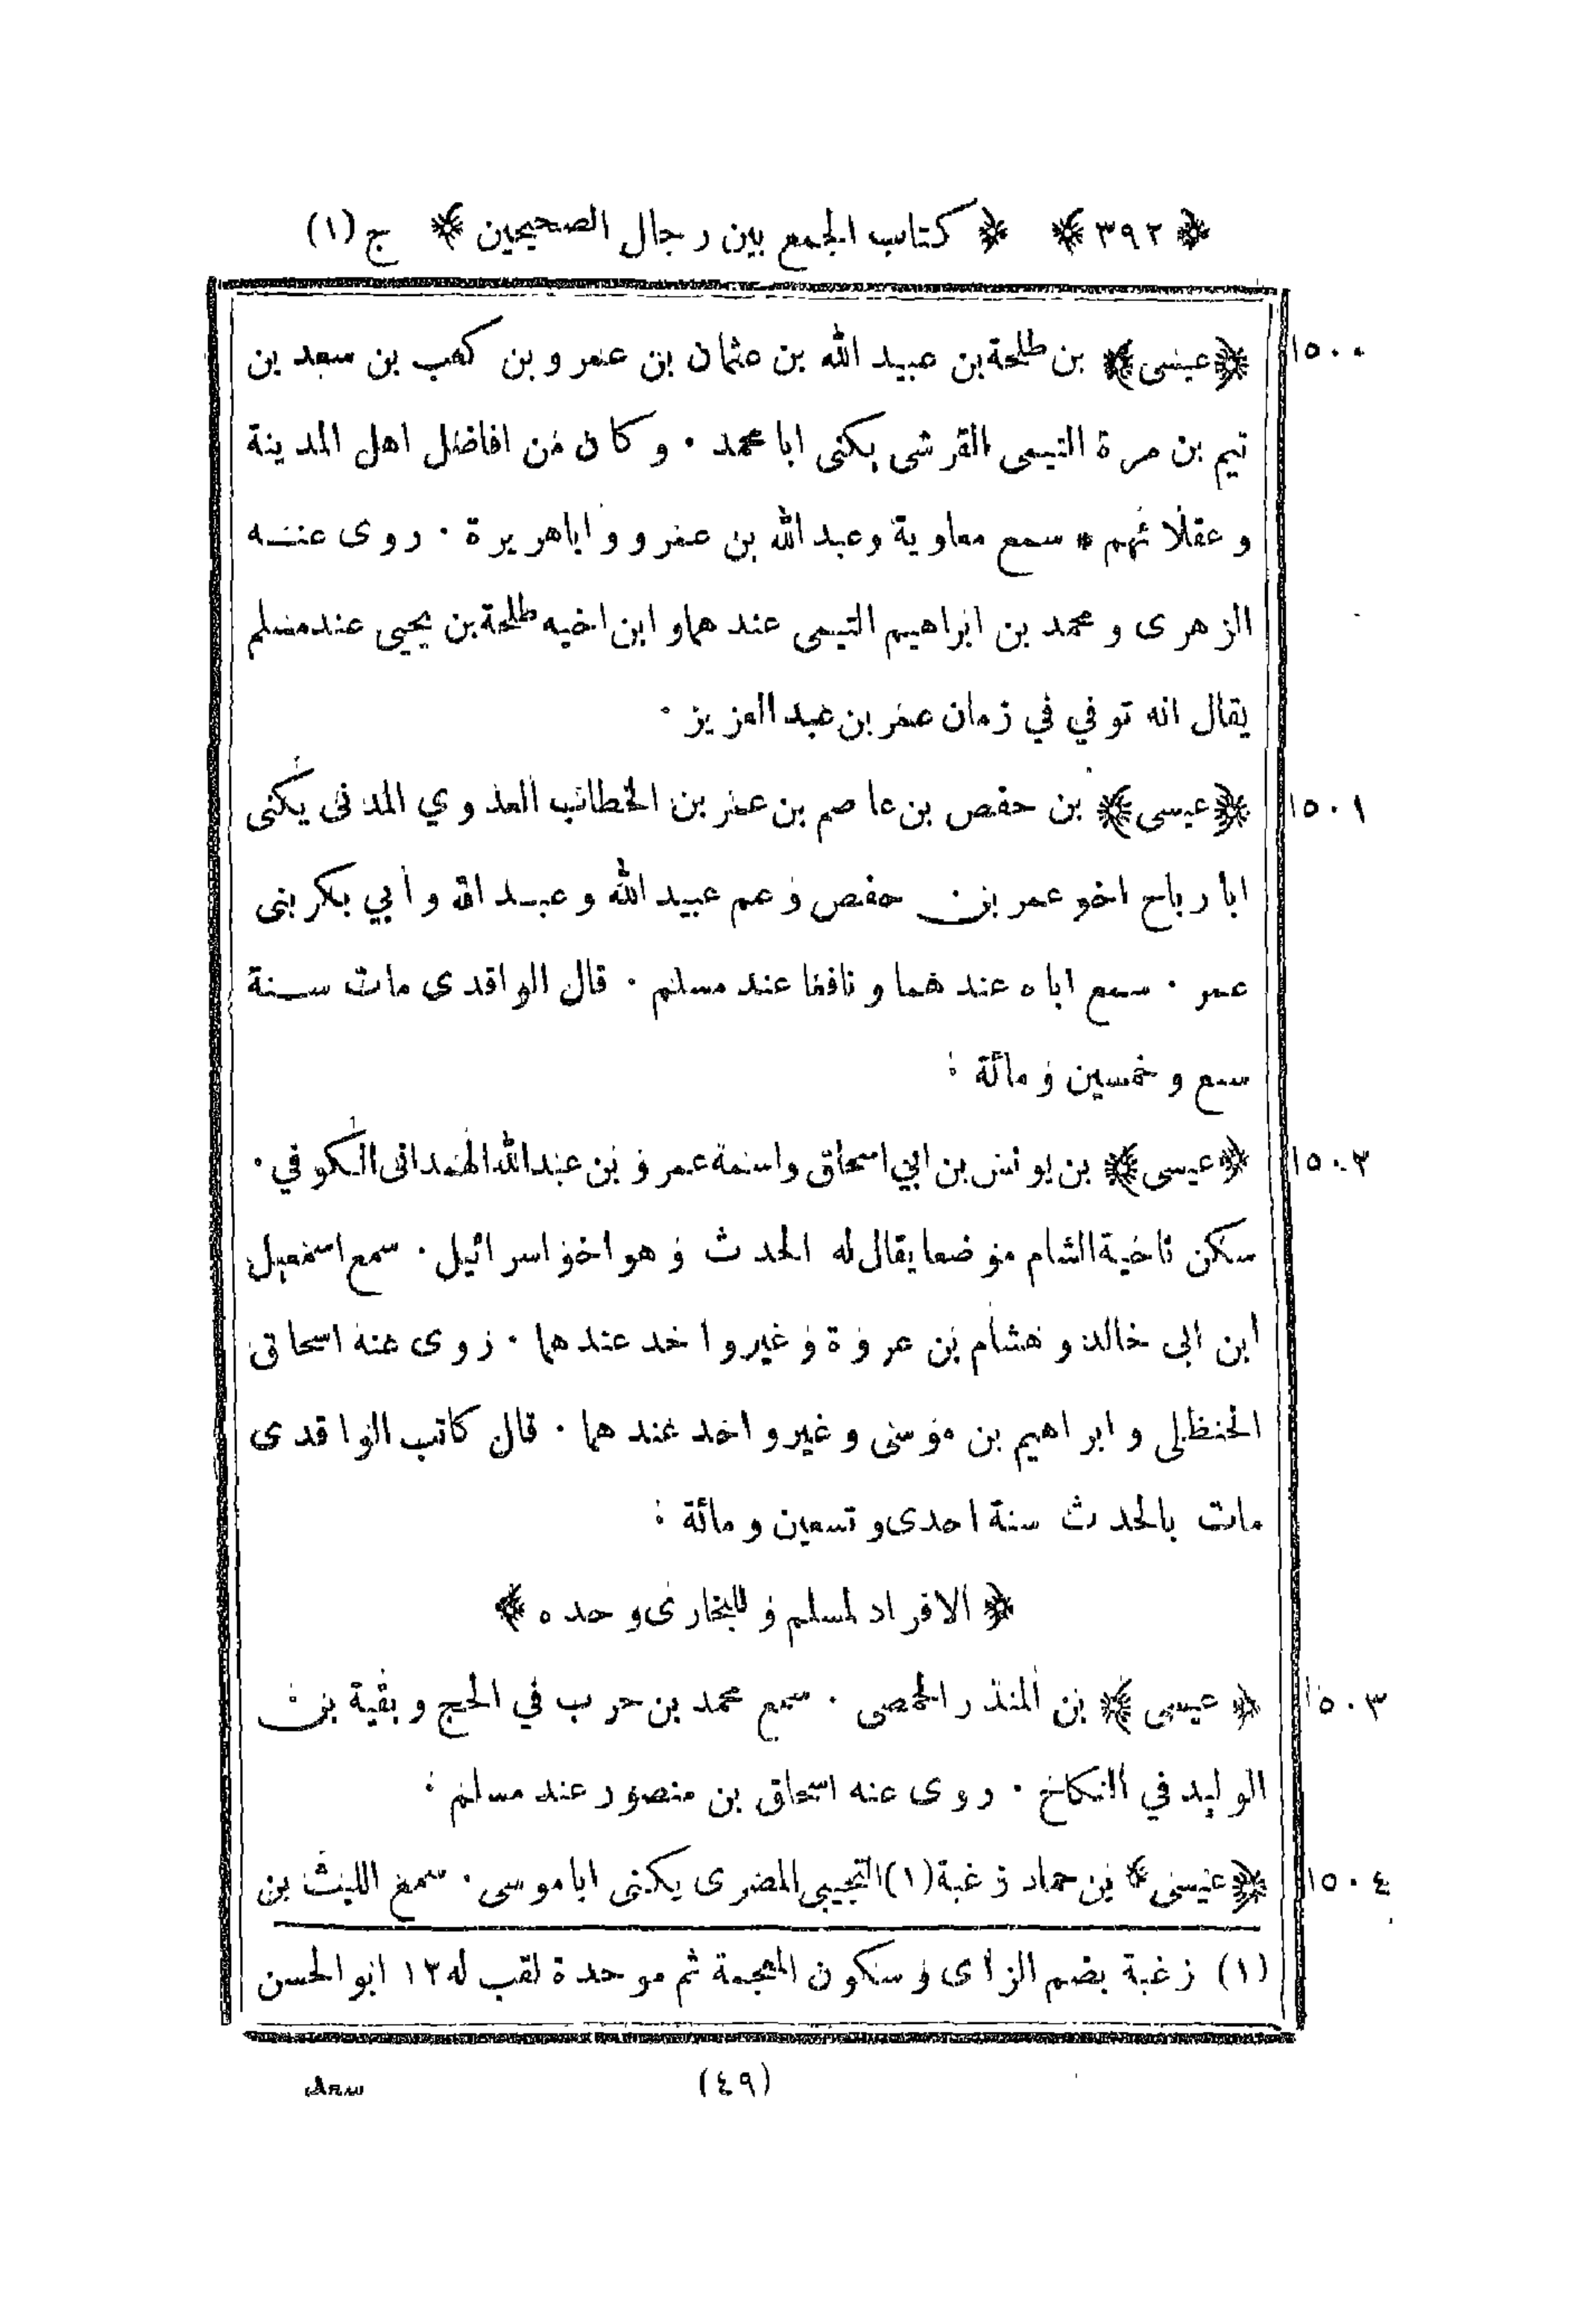 ﴿٣٩٢﴾ ﴿كتاب الجمع بين رجال الصحيحين﴾ ج (١)
١٥٠٠ ﴿عيسى﴾ بن طلحة بن عبيد الله بن عثمان بن عمرو بن كعب بن سعد بن
تيم بن مرة التيمى القرشى يكنى ابا محمد ٠ وكان من افاضل اهل المدينة
وعقلائهم * سمع معاوية وعبد الله بن عمرو وأباهريرة ٠ روى عنه
الزهرى ومحمد بن ابراهيم التيمى عندهما وابن اخيه طلحة بن يحيى عند مسلم
يقال انه توفي في زمان عمر بن عبد العزيز ٠
١٥٠١ ﴿عيسى﴾ بن حفص بن عاصم بن عمر بن الخطاب العدوي المدنى يكنى
ابا رباح اخو عمر بن حفص وعم عبيد الله وعبد الله وأبي بكر بنى
عمر ٠ سمع اباه عندهما ونافعا عند مسلم ٠ قال الواقدى مات سنة
سبع وخمسين ومائة :
١٥٠٢ ﴿عيسى﴾ بن يونس بن ابي اسحاق واسمه عمرو بن عبد الله الهمدانى الكوفي ٠
سكن ناحية الشام موضعا يقال له الحدث وهو اخو اسرائيل ٠ سمع اسمعيل
ابن ابى خالد وهشام بن عروة وغير واحد عندهما ٠ روى عنه اسحاق
الحنظلى وابراهيم بن موسى وغير واحد عندهما ٠ قال كاتب الواقدى
مات بالحدث سنة احدى وتسعين ومائة :
﴿الافراد لمسلم وللبخارى وحده﴾
١٥٠٣ ﴿عيسى﴾ بن المنذر الحمصى ٠ سمع محمد بن حرب في الحج وبقية بن
الوليد في النكاح ٠ روى عنه اسحاق بن منصور عند مسلم :
١٥٠٤ ﴿عيسى﴾ بن حماد زغبة (١) التجيبى المصرى يكنى ابا موسى ٠ سمع الليث بن
(١) زغبة بضم الزاى وسكون المعجمة ثم موحدة لقب له ١٢ ابو الحسن
(٤٩)
سعد